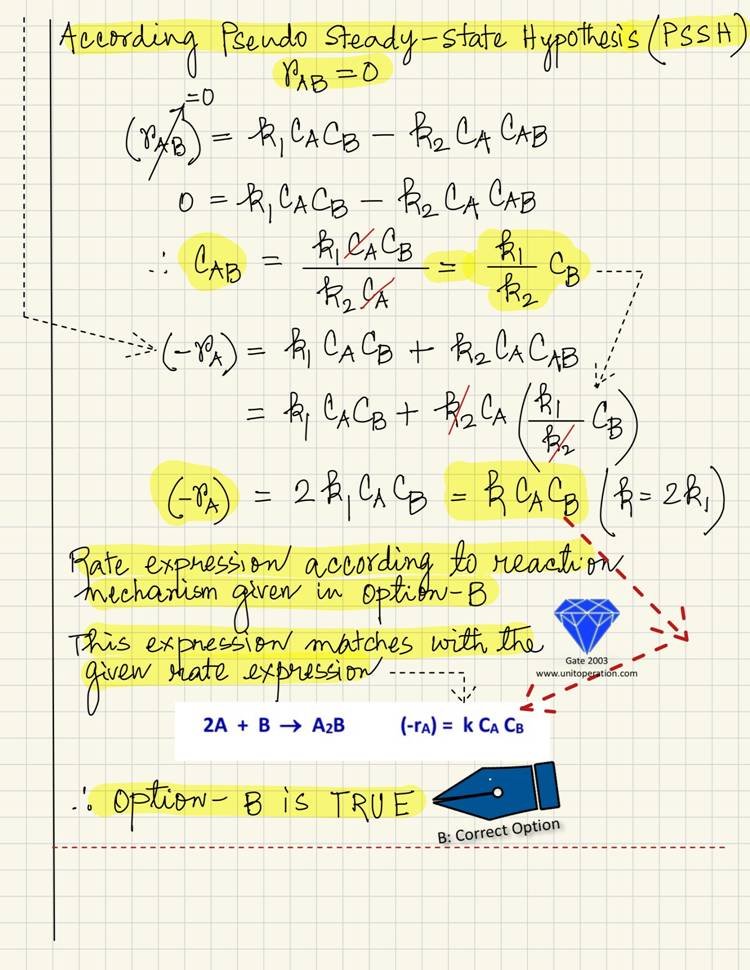 According Pseudo Steady-State Hypothesis (PSSH)
r_AB = 0
(r_AB) = k₁ C_A C_B − k₂ C_A C_AB
=0
0 = k₁ C_A C_B − k₂ C_A C_AB
∴ C_AB = k₁ C_A C_B / k₂ C_A = k₁/k₂ C_B
(−r_A) = k₁ C_A C_B + k₂ C_A C_AB
= k₁ C_A C_B + k₂ C_A (k₁/k₂ C_B)
(−r_A) = 2k₁ C_A C_B = k C_A C_B (k = 2k₁)
Rate expression according to reaction
mechanism given in option-B
This expression matches with the
given rate expression
Gate 2003
www.unitoperation.com
2A + B → A₂B (-r_A) = k C_A C_B
∴ Option- B is TRUE
B: Correct Option